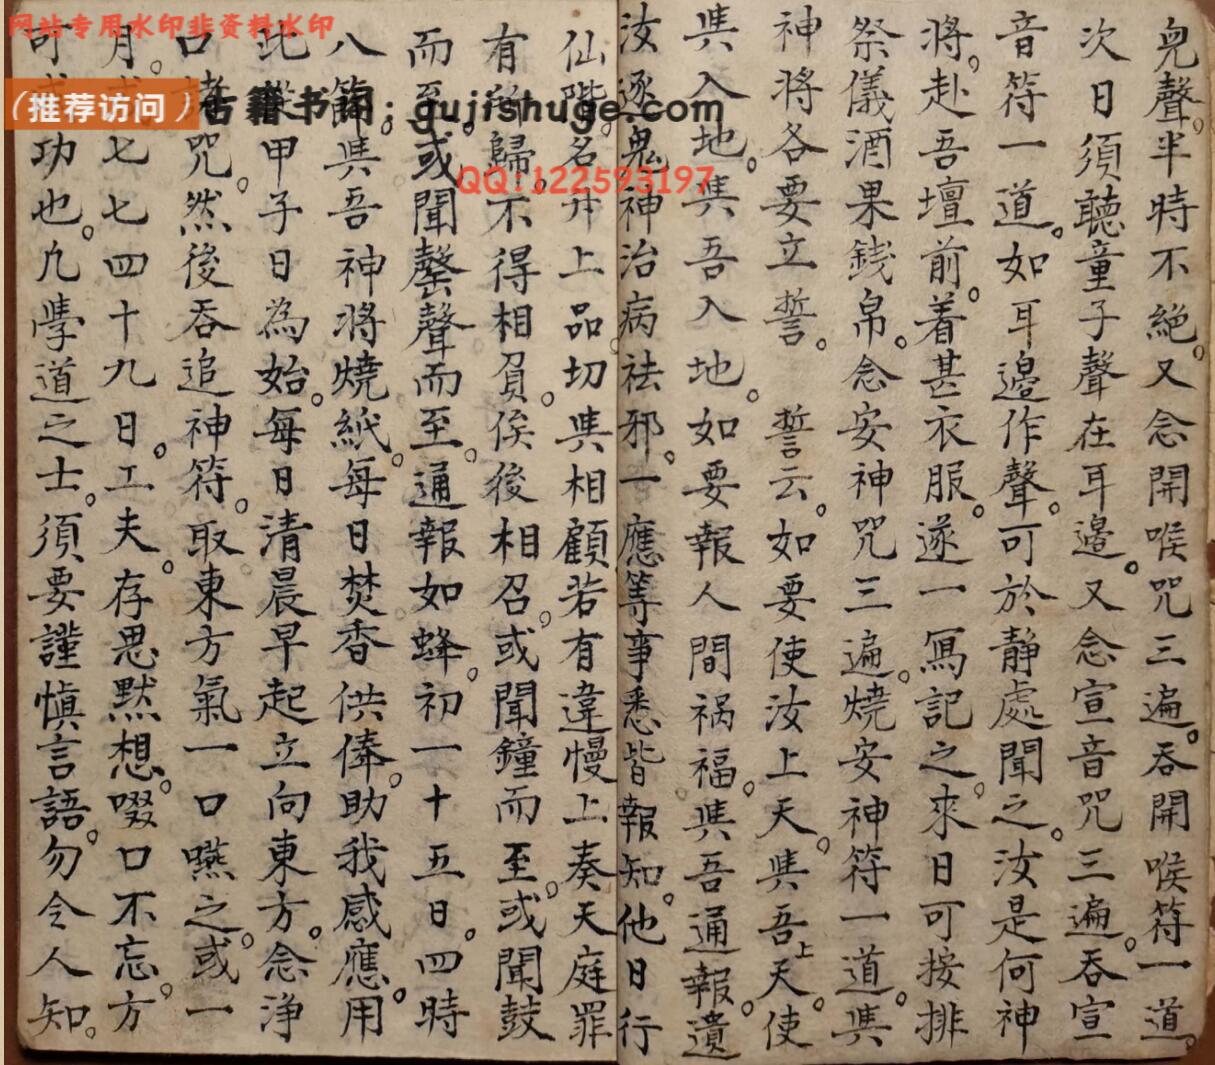 网站专用水印非资料水印
（推荐访问）古籍书阁：gujishuge.com
QQ:122593197
皃聲。半時不絕。又念開喉咒三遍。吞開喉符一道。
次日須聽童子聲在耳邉。又念宣音咒三遍。吞宣
音符一道。如耳邉作聲。可於靜處聞之。汝是何神
將。赴吾壇前。着甚衣服。遂一冩記之。來日可按排
祭儀酒果錢帛。念安神咒三遍。燒安神符一道。與
神將各要立誓。誓云。如要使汝上天。與吾上天。使
與入地。與吾入地。如要報人間祸福。與吾通報。遺
汝逐鬼神治病祛邪。一應等事悉皆報知。他日行
仙階。名升上品。切與相顧。若有違慢。上奏天庭罪
有所歸。不得相負。俟後相召。或聞鐘而至。或聞鼓
而至。或聞罄聲而至。通報如蜂。初一十五日。四時
八節。與吾神將燒紙。每日焚香供俸。助我感應。用
此 甲子日為始。每日清晨早起立向東方。念淨
口 咒。然後吞追神符。取東方氣一口嚥之。或一
月。或七七四十九日。工夫。存思默想。啜口不忘。方
可成功也。凢學道之士。須要謹慎言語。勿令人知。